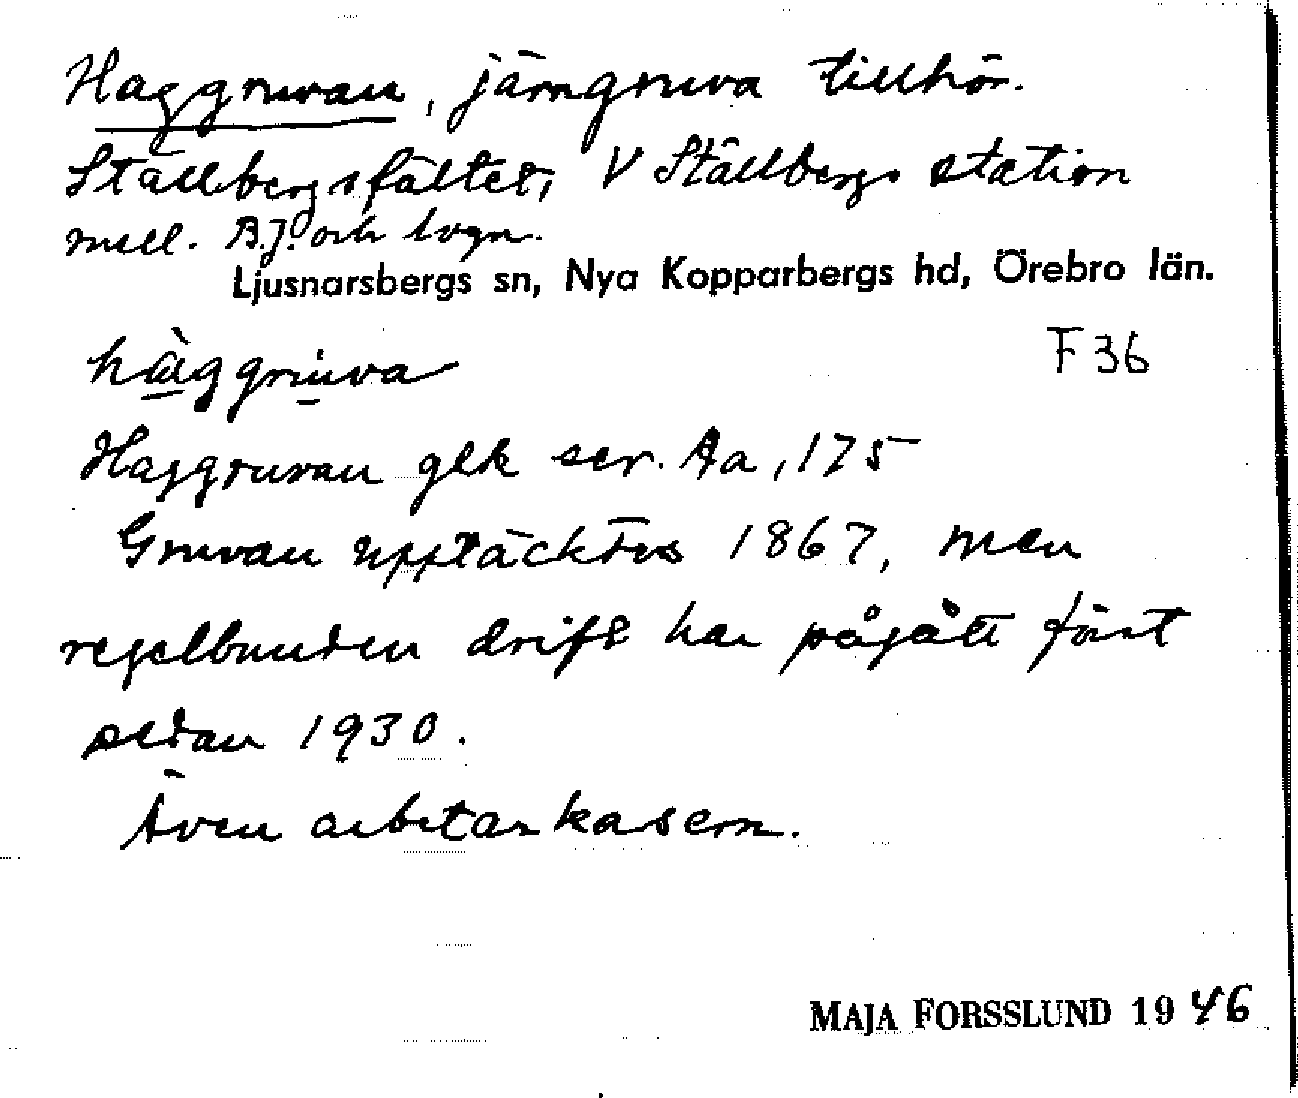 Haggruvan, järngruva tillhör.
Ställbergsfältet, V Ställbergs station
mell. B.J. och lvgn.
Ljusnarsbergs sn, Nya Kopparbergs hd, Örebro län.
hàggrùva
F 36
Haggruvan gek ser. Aa, 175
Gruvan upptäcktes 1867, men
regelbunden drift har pågått först
sedan 1930.
Även arbetarkasern.
MAJA FORSSLUND 1946